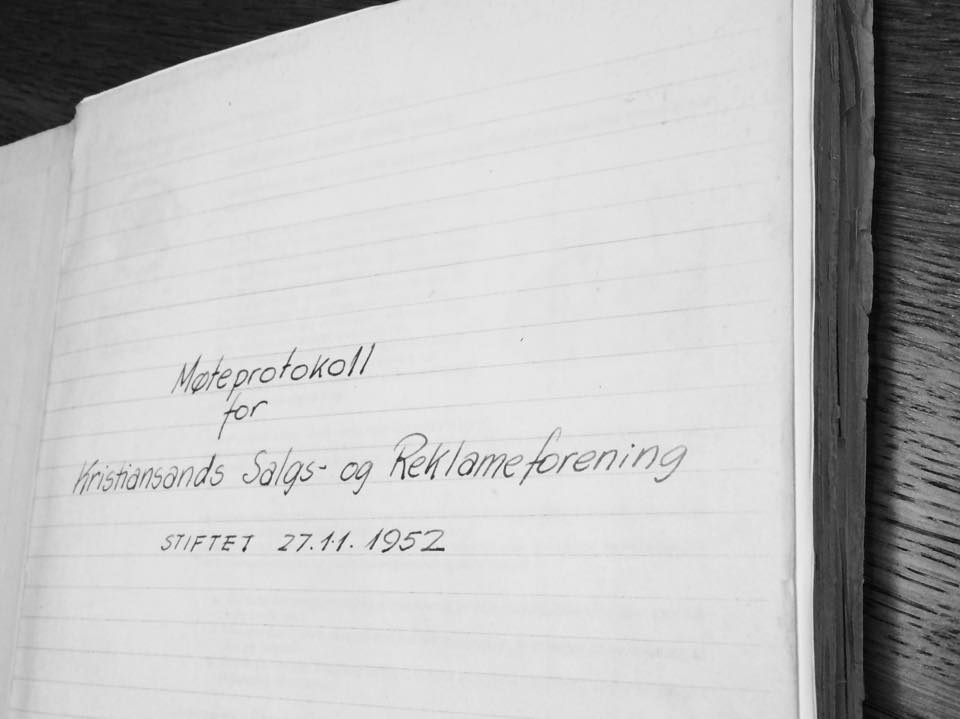 Møteprotokoll
for
Kristiansands Salgs- og Reklameforening
STIFTET 27.11.1952